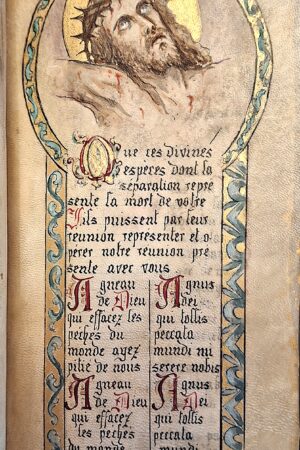 Que ces Divines
especes dont la
séparation repre
sente la mort de votre
Fils puissent par leur
reunion representer et o
perer notre reunion pre
sente avec vous
Agneau
de Dieu
qui effacez les
péches du
monde ayez
pitié de nous
Agneau
de Dieu
qui effacez
les péchés
du monde
Agnus
dei
qui tollis
peccata
mundi mi
serere nobis
Agnus
Dei
qui tollis
peccata
mundi